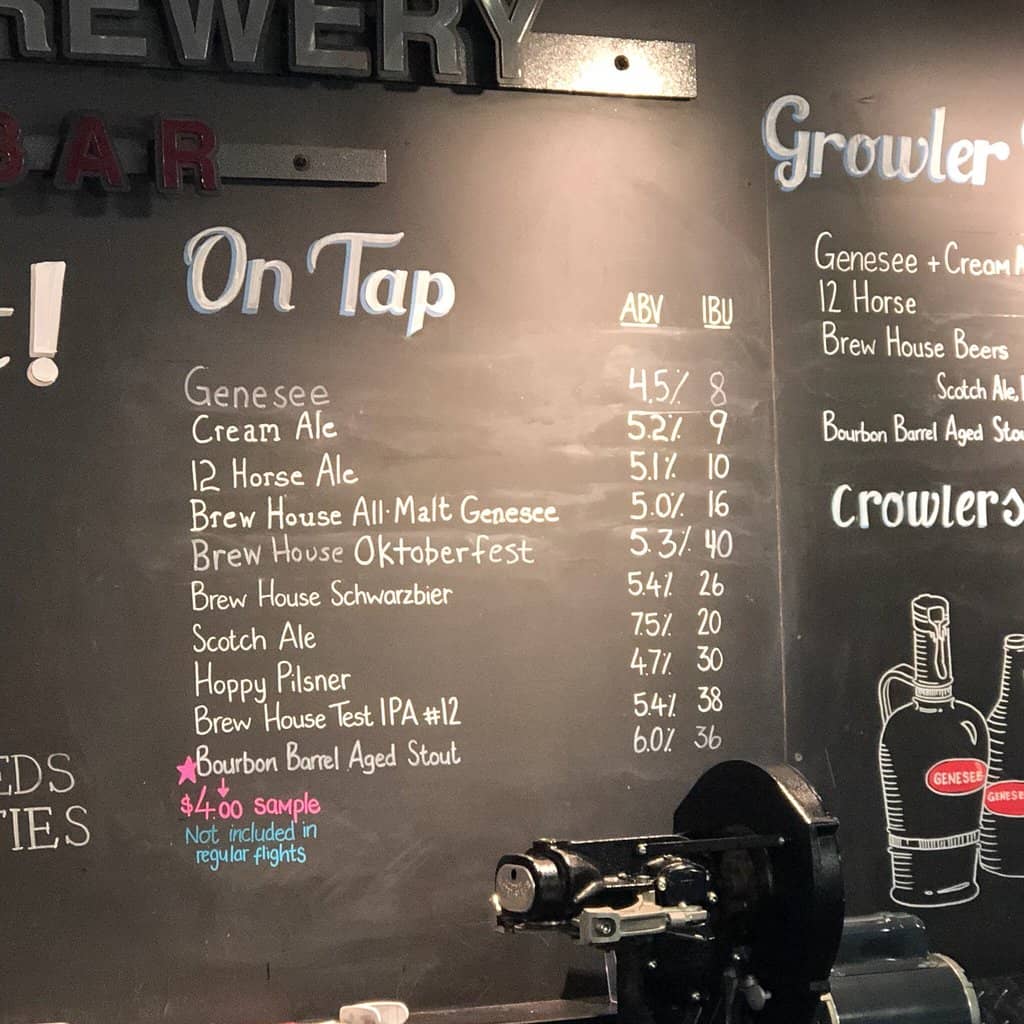 REWERY
BAR
On Tap
ABV IBU
Genesee 4.5% 8
Cream Ale 5.2% 9
12 Horse Ale 5.1% 10
Brew House All-Malt Genesee 5.0% 16
Brew House Oktoberfest 5.3% 40
Brew House Schwarzbier 5.4% 26
Scotch Ale 7.5% 20
Hoppy Pilsner 4.7% 30
Brew House Test IPA #12 5.4% 38
Bourbon Barrel Aged Stout 6.0% 36
$4.00 sample
Not included in
regular flights
EDS
TIES
Growler
Genesee + Cream A
12 Horse
Brew House Beers
Scotch Ale,
Bourbon Barrel Aged Stou
Crowlers
GENESEE
GENESE